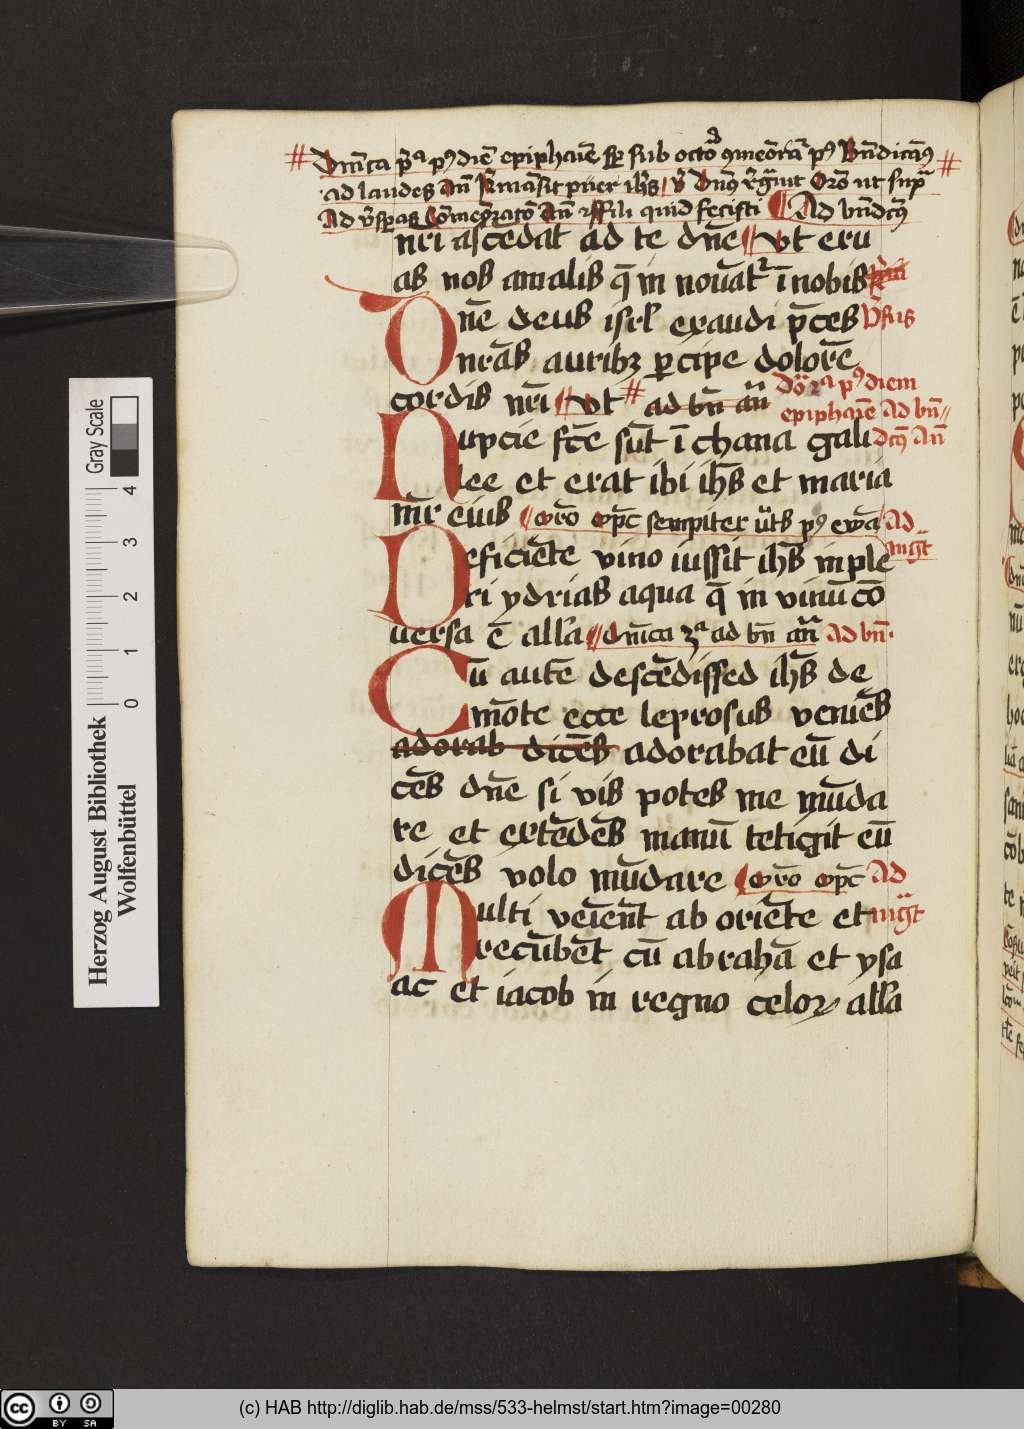 # Dnica pª p9 diē epiphaīe sꝑ sub octō 9meōrā p9 Bn̄dicam9 #
ad laudes an̄ Remāsit puer ih̄s v̄ Dn̄9 r̄gūit Orō ut supª
Ad v̄sꝑas Cōmeōracō an̄ Fili quid fecisti Ad bn̄dc9
nr̄i ascēdat ad te dn̄e vt eru
as nos a malis q̄ in nouāt᷑ ī nobis
Dn̄e deus isrl exaudi p̄ces v̄sus
nrās auribꝫ ꝑcipe dolorē
cordis nr̄i vt # ad bn̄ an̄
Dō p9 diem
epiphaīe ad bn̄
dc9 an̄
Nupcie fcē sūt ī chana gali
lee et erat ibi ih̄s et maria
mr̄ eius orō opc̄ sempiter ut̄s p9 ewā ad
mgt̄
Deficiēte vino iussit ih̄s inple
ri ydrias aqua q̄ in vinū cō
uersa ē all̄a dnīca 3ª ad bn̄ an̄ ad bn̄
Cū autē descēdissed ih̄s de
mōte ecce leprosus veniēs
adorab dicēs adorabat eū di
cēs dn̄e si vis potes me mūda
re et extēdēs manū tetigit eū
dicēs volo mūdare orō opc̄ ad
mgt̄
Multi veīent̄ ab oriēte et
recūbēt cū abrahā et ysa
ac et iacob in regno celoꝝ all̄a
Gray Scale
4
3
2
1
0
Herzog August Bibliothek
Wolfenbüttel
cc BY SA
(c) HAB http://diglib.hab.de/mss/533-helmst/start.htm?image=00280